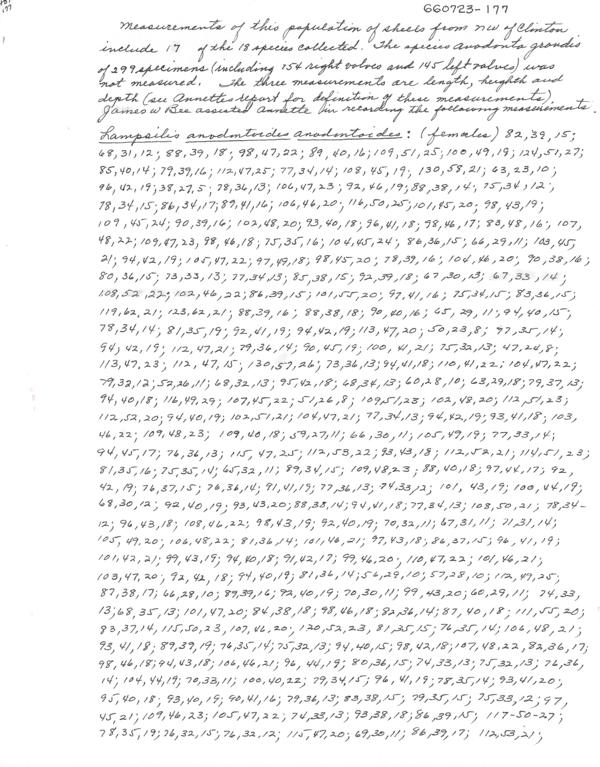 GG0723-177
177
Measurements of this population of shells from NW of Clinton
include 17 of the 18 species collected. The species anodonta grandis
of 299 specimens (including 154 right valves and 145 left valves) was
not measured. The three measurements are length, heighth and
depth (see Annettes report for definition of these measurements).
James W Bee assisted Annette in recording the following measurements.
Lampsilis anodontoides anodontoides: (females) 82,39,15;
68,31,12; 88,39,18; 98,47,22; 89,40,16; 109,51,25; 100,49,19; 124,51,27;
85,40,14; 79,39,16; 112,47,25; 77,34,14; 108,45,19; 130,58,21; 63,23,10;
96,42,19; 38,27,5; 78,36,13; 106,47,23; 92,46,19; 88,38,14; 75,34,12;
78,34,15; 86,34,17; 89,41,16; 106,46,20; 116,50,25; 101,45,20; 98,43,19;
109,45,24; 90,39,16; 102,48,20; 93,40,18; 96,41,18; 98,46,17; 83,48,16; 107,
48,22; 109,47,23; 98,46,18; 75,35,16; 104,45,24; 86,36,15; 66,29,11; 103,45,
21; 94,42,19; 105,47,22; 97,49,18; 98,45,20; 78,39,16; 104,46,20; 90,38,16;
80,36,15; 73,33,13; 77,34,13; 85,38,15; 92,39,18; 67,30,13; 67,33,14;
108,52,22; 102,46,22; 86,39,15; 101,55,20; 97,41,16; 75,34,15; 83,36,15;
119,62,21; 123,62,21; 88,39,16; 88,38,18; 90,40,16; 65,29,11; 94,40,15;
78,34,14; 81,35,19; 92,41,19; 94,42,19; 113,47,20; 50,23,8; 77,35,14;
94,42,19; 112,47,21; 79,36,14; 90,45,19; 100,41,21; 75,32,13; 47,24,8;
113,47,23; 112,47,15; 130,57,26; 73,36,13; 94,41,18; 110,41,22; 104,47,22;
79,32,12; 52,26,11; 68,32,13; 95,42,18; 68,34,13; 60,28,10; 63,29,18; 79,37,13;
94,40,18; 116,49,29; 107,45,22; 51,26,8; 109,51,23; 102,48,20; 112,51,23;
112,52,20; 94,40,19; 102,51,21; 104,47,21; 77,34,13; 94,42,19; 93,41,18; 103,
46,22; 109,48,23; 109,40,18; 59,27,11; 66,30,11; 105,49,19; 77,33,14;
94,45,17; 76,36,13; 115,47,25; 112,53,22; 93,43,18; 112,52,21; 114,51,23;
81,35,16; 75,35,14; 65,32,11; 89,34,15; 109,48,23; 88,40,18; 97,44,17; 92,
42,19; 76,37,15; 76,36,14; 91,41,19; 77,36,13; 74,33,12; 101,43,19; 100,44,19;
68,30,12; 92,40,19; 93,43,20; 88,38,14; 94,41,18; 77,34,13; 108,50,21; 78,34-
12; 96,43,18; 108,46,22; 98,43,19; 92,40,19; 70,32,11; 67,31,11; 71,31,14;
105,49,20; 106,48,22; 81,36,14; 101,46,21; 97,43,18; 86,37,15; 96,41,19;
101,42,21; 99,43,19; 94,40,18; 91,42,17; 99,46,20; 110,47,22; 101,46,21;
103,47,20; 92,42,18; 94,40,19; 81,36,14; 56,29,10; 57,28,10; 112,49,25;
87,38,17; 66,28,10; 89,39,16; 92,40,19; 70,30,11; 99,43,20; 60,29,11; 74,33,
13; 68,35,13; 101,47,20; 84,38,18; 98,46,18; 82,36,14; 87,40,18; 111,55,20;
83,37,14; 115,50,23; 107,46,20; 120,52,23; 81,35,15; 76,35,14; 106,48,21;
93,41,18; 89,39,19; 76,35,14; 75,32,13; 94,40,15; 98,42,18; 107,48,22; 82,36,17;
98,46,18; 94,43,18; 106,46,21; 96,44,19; 80,36,15; 74,33,13; 75,32,13; 76,36,
14; 104,44,19; 70,33,11; 100,40,22; 79,34,15; 96,41,19; 78,35,14; 93,41,20;
95,40,18; 93,40,19; 90,41,16; 79,36,13; 83,38,15; 79,35,15; 75,33,12; 97,
45,21; 109,46,23; 105,47,22; 74,33,13; 93,38,18; 86,39,15; 117-50-27;
78,35,19; 76,32,15; 76,32,12; 115,47,20; 69,30,11; 86,39,17; 112,53,21;